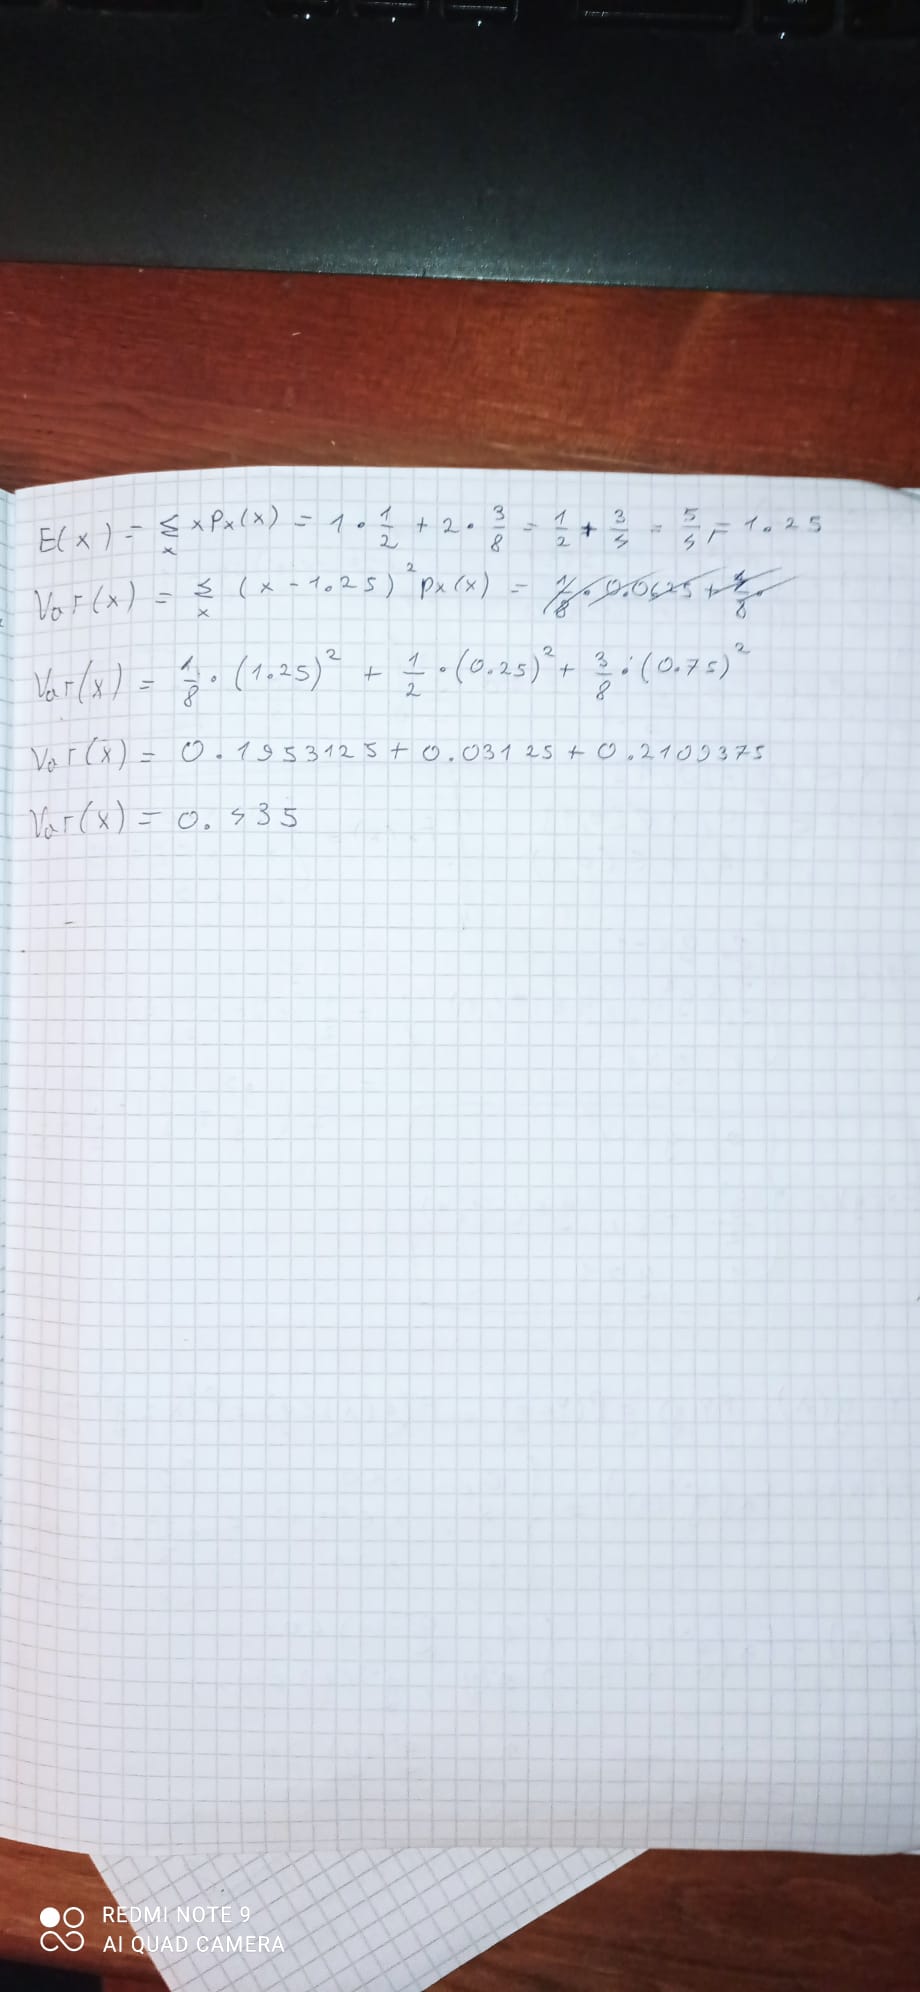 E(x) = Σ_x x Px(x) = 1 · 1/2 + 2 · 3/8 = 1/2 + 3/4 = 5/4 = 1.25
Var(x) = Σ_x (x - 1.25)² px(x) =
Var(x) = 1/8 · (1.25)² + 1/2 · (0.25)² + 3/8 · (0.75)²
Var(x) = 0.1953125 + 0.03125 + 0.2109375
Var(x) = 0.435
REDMI NOTE 9
AI QUAD CAMERA